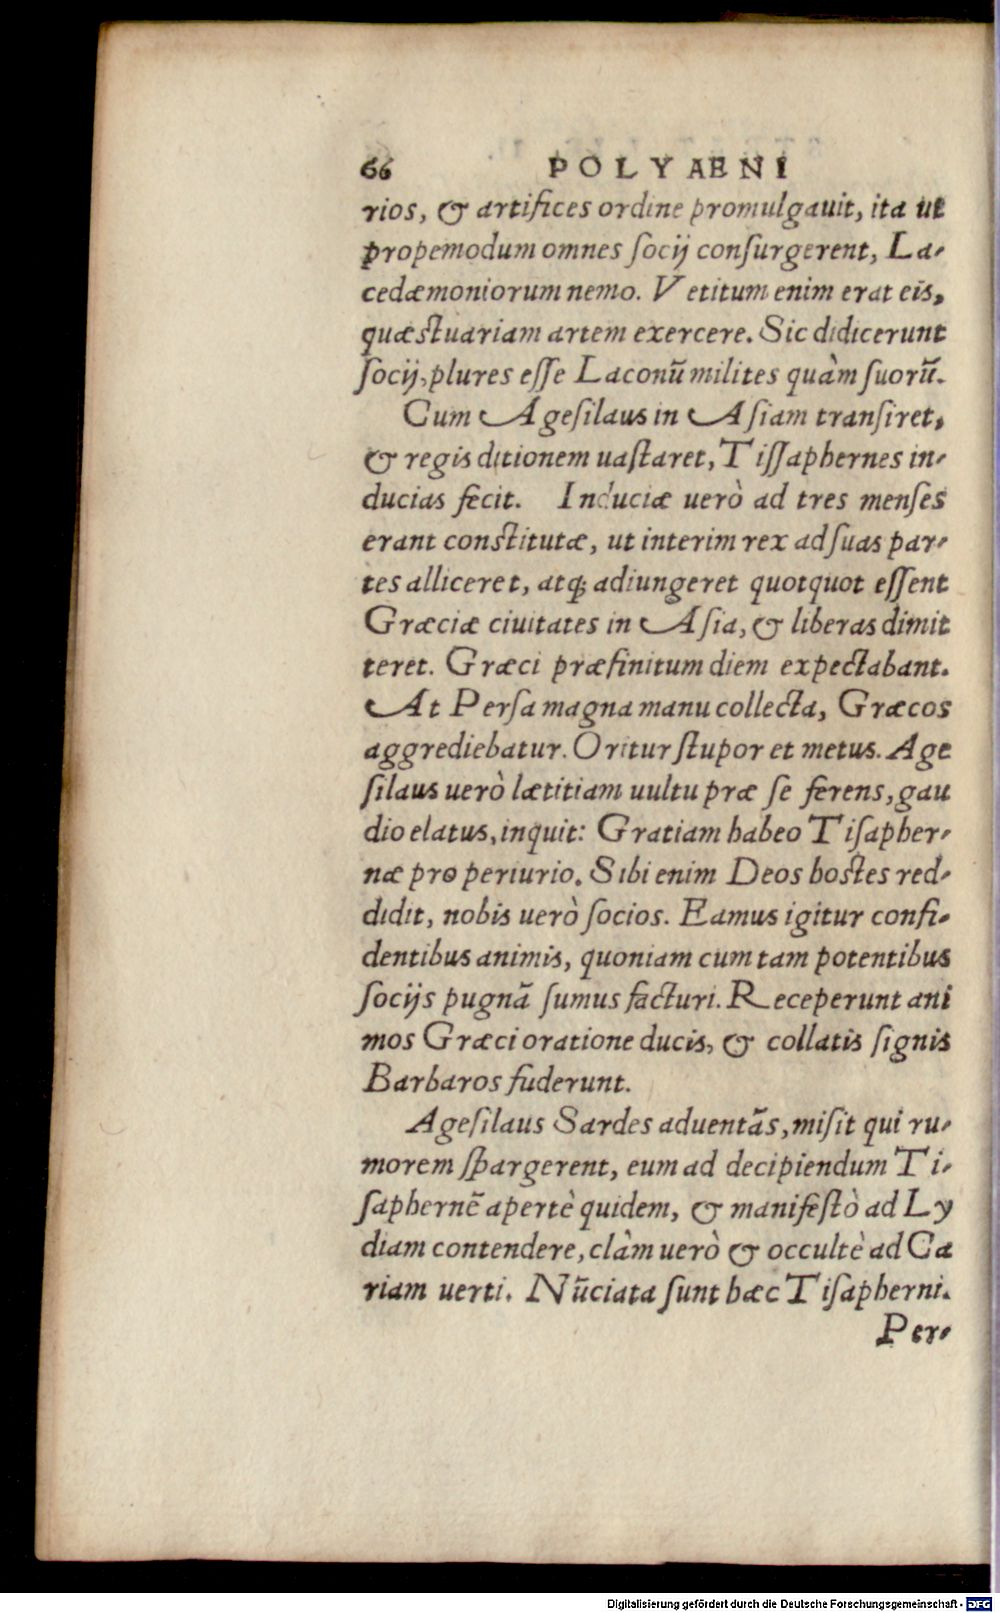 66 POLYAENI
rios, & artifices ordine promulgauit, ita ut
propemodum omnes ſocij conſurgerent, La-
cedæmoniorum nemo. Vetitum enim erat eis,
quæstuariam artem exercere. Sic didicerunt
ſocij, plures eſſe Laconũ milites quàm ſuorũ.
Cum Ageſilaus in Aſiam tranſiret,
& regis ditionem uaſtaret, Tiſſaphernes in-
ducias fecit. Induciæ uerò ad tres menſes
erant constitutæ, ut interim rex ad ſuas par-
tes alliceret, atq; adiungeret quotquot eſſent
Græciæ ciuitates in Aſia, & liberas dimit
teret. Græci præfinitum diem expectabant.
At Perſa magna manu collecta, Græcos
aggrediebatur. Oritur ſtupor et metus. Age
ſilaus uerò lætitiam uultu præ ſe ferens, gau
dio elatus, inquit: Gratiam habeo Tiſapher-
næ pro periurio. Sibi enim Deos hostes red-
didit, nobis uerò ſocios. Eamus igitur confi-
dentibus animis, quoniam cum tam potentibus
ſocijs pugnã ſumus facturi. Receperunt ani
mos Græci oratione ducis, & collatis ſignis
Barbaros fuderunt.
Ageſilaus Sardes aduentãs, miſit qui ru-
morem ſpargerent, eum ad decipiendum Ti-
ſaphernẽ apertè quidem, & manifeſtò ad Ly
diam contendere, clàm uerò & occultè ad Ca
riam uerti. Nũciata ſunt hæc Tiſapherni.
Per-
Digitalisierung gefördert durch die Deutsche Forschungsgemeinschaft - DFG